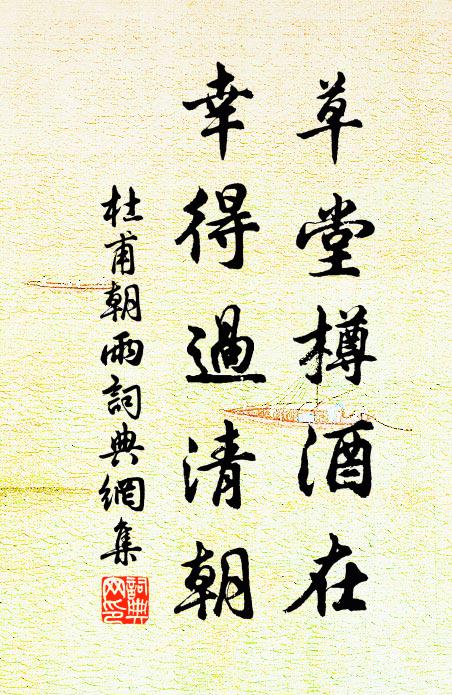 草堂樽酒在
幸得過清朝
杜甫朝雨詞典網集
詞典網印